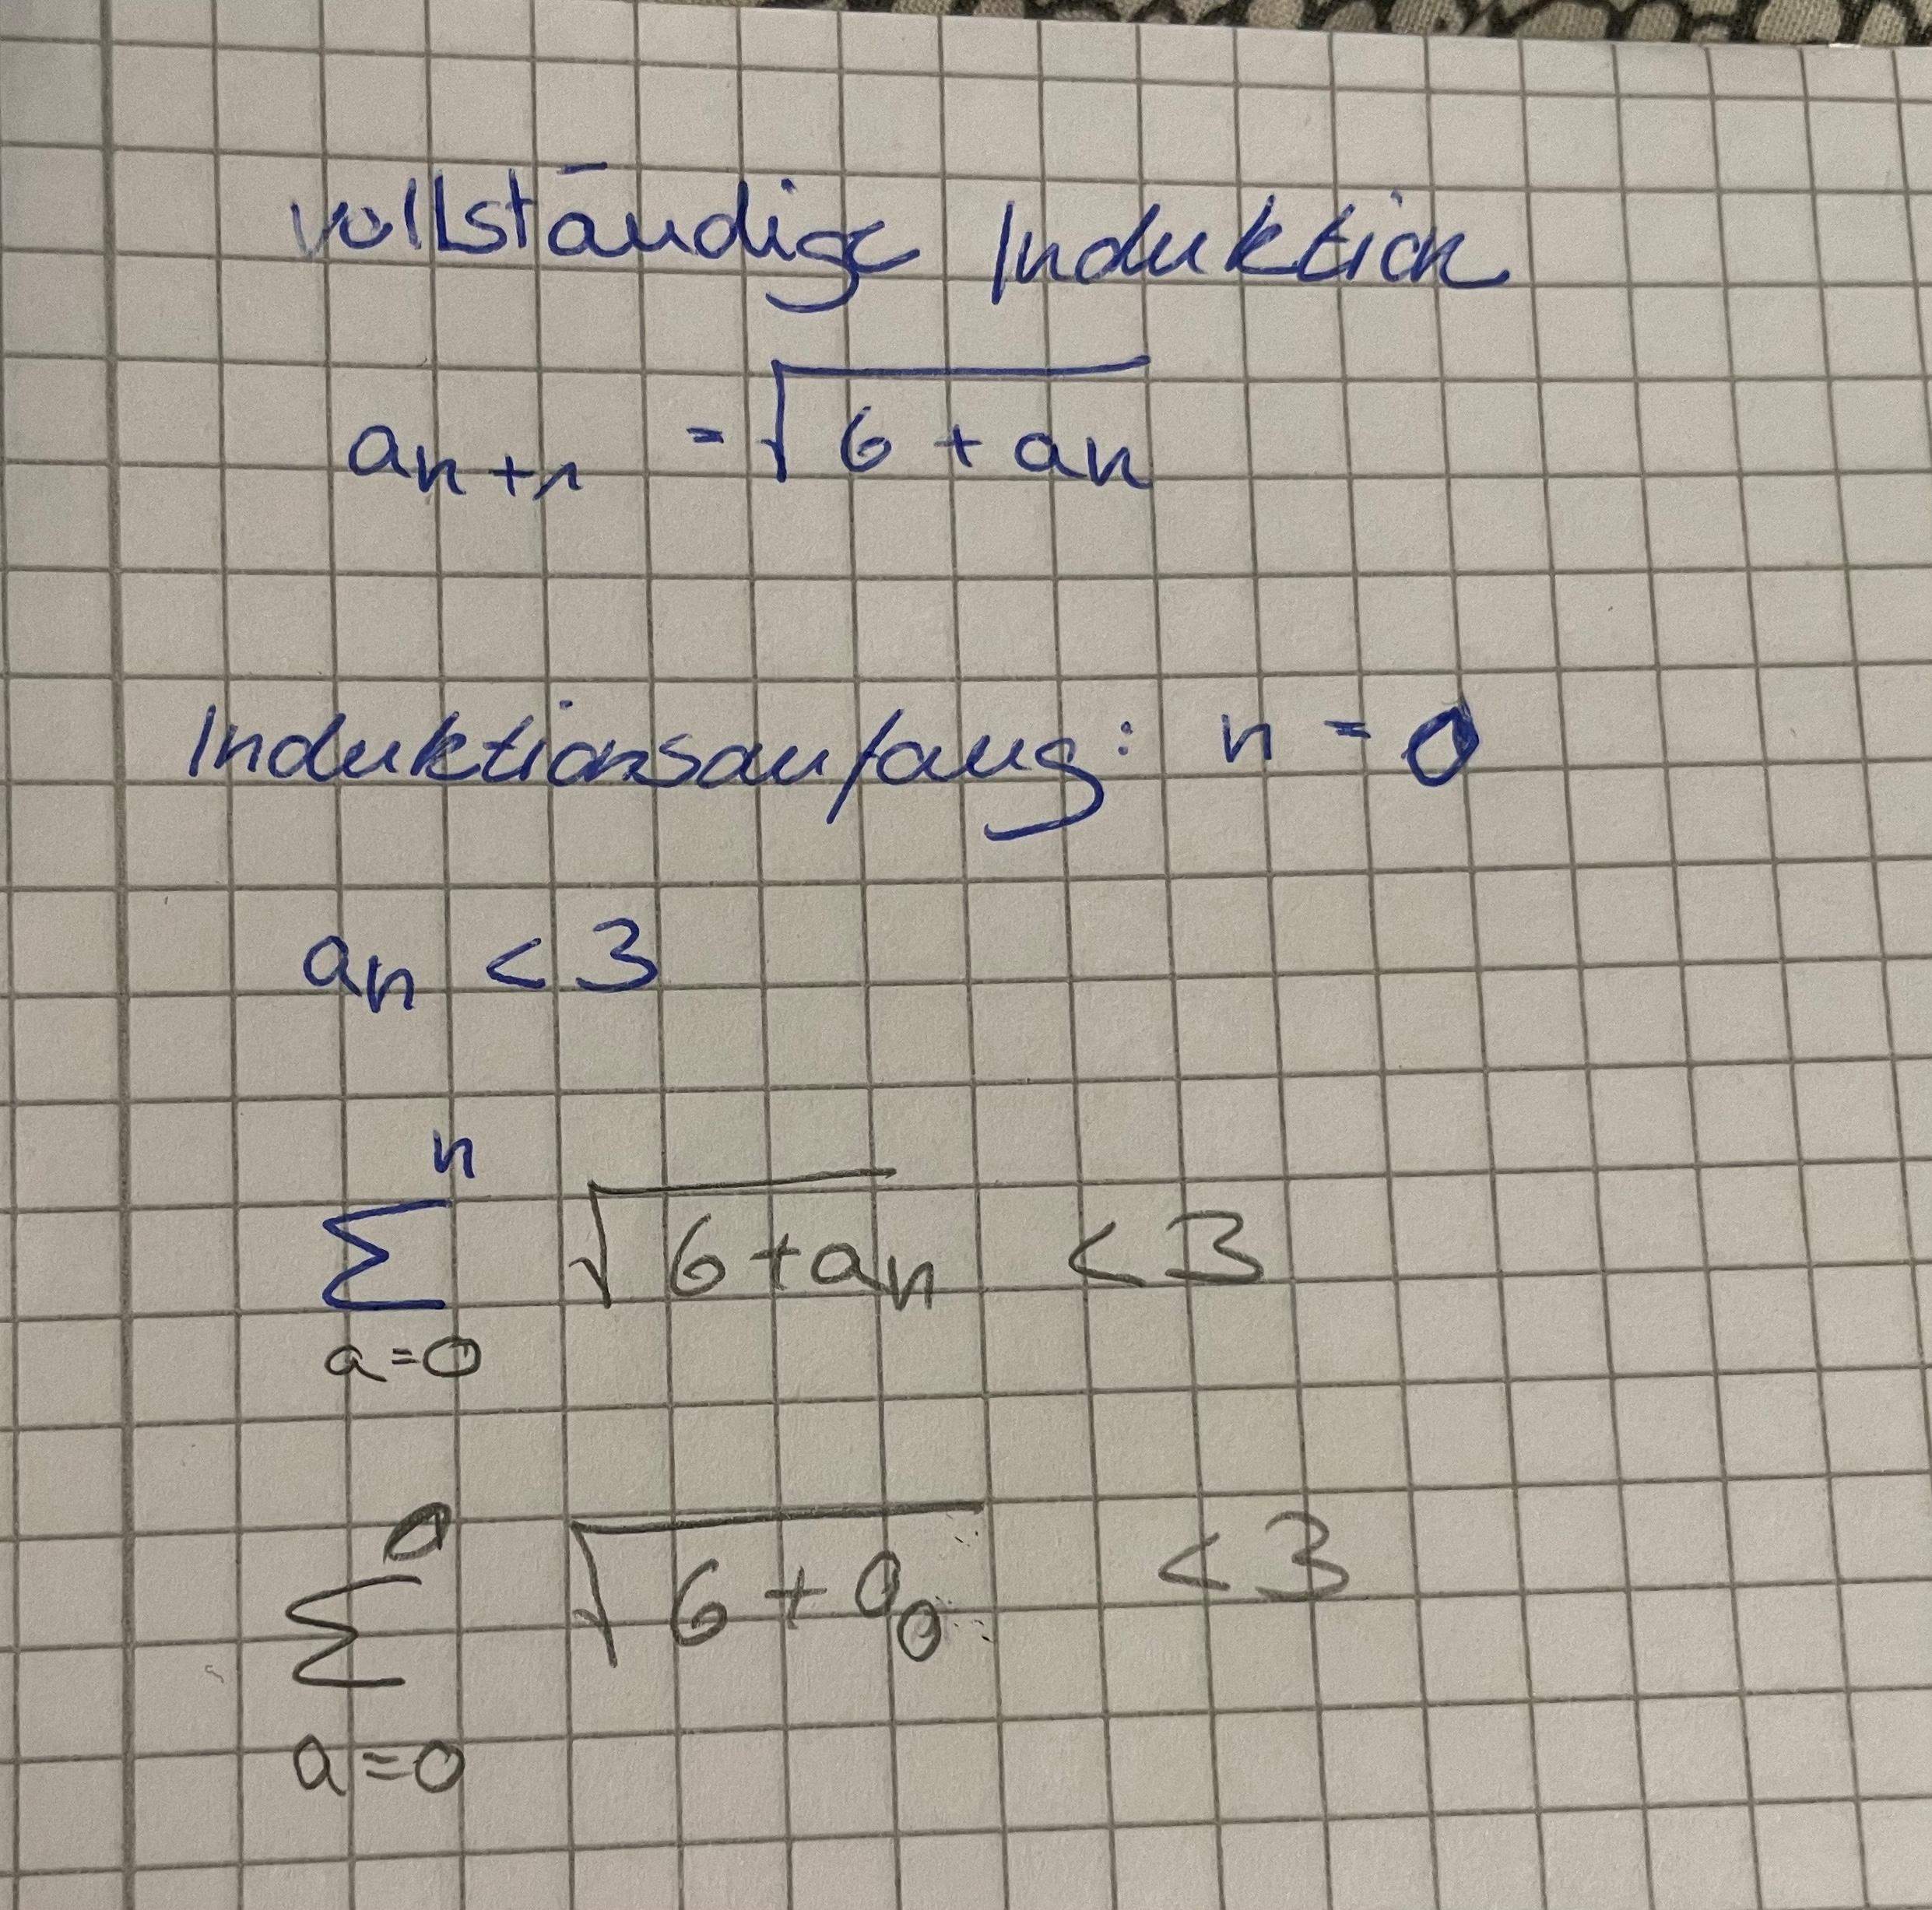 vollständige Induktion
aₙ₊₁ = √(6 + aₙ)
Induktionsanfang: n = 0
aₙ < 3
∑ₐ₌₀ⁿ √(6 + aₙ) < 3
∑ₐ₌₀⁰ √(6 + 0₀) < 3